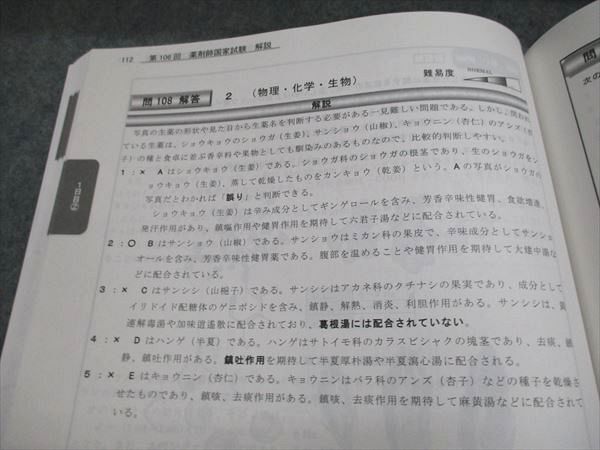 112 第106回 薬剤師国家試験 解説
問108 解答 2 (物理・化学・生物) 難易度 NORMAL
解説
写真の生薬の形状や見た目から生薬名を判断する必要がある一見難しい問題である。しかし、問われ
ている生薬は、ショウキョウのショウガ(生姜)、サンショウ(山椒)、キョウニン(杏仁)のアンズ(
子)の種と食卓に並ぶ香辛料や果物としても馴染みのあるものなので、比較的判断しやすい。
1:× Aはショウキョウ(生姜)である。ショウガ科のショウガの根茎であり、生のショウガをシ
ョウキョウ(生姜)、蒸して乾燥したものをカンキョウ(乾姜)という。Aの写真がショウガの
写真だとわかれば「誤り」と判断できる。
ショウキョウ(生姜)は辛み成分としてギンゲロールを含み、芳香辛味性健胃、食欲増進、
発汗作用があり、鎮嘔作用や健胃作用を期待して六君子湯などに配合されている。
2:○ Bはサンショウ(山椒)である。サンショウはミカン科の果皮で、辛味成分としてサンショ
オールを含み、芳香辛味性健胃薬である。腹部を温めることや健胃作用を期待して大建中湯な
どに配合されている。
3:× Cはサンシシ(山梔子)である。サンシシはアカネ科のクチナシの果実であり、成分として
イリドイド配糖体のゲニポシドを含み、鎮静、解熱、消炎、利胆作用がある。サンシシは、黄
連解毒湯や加味逍遙散に配合されており、葛根湯には配合されていない。
4:× Dはハンゲ(半夏)である。ハンゲはサトイモ科のカラスビシャクの塊茎であり、去痰、鎮
静、鎮吐作用がある。鎮吐作用を期待して半夏厚朴湯や半夏瀉心湯に配合される。
5:× Eはキョウニン(杏仁)である。キョウニンはバラ科のアンズ(杏子)などの種子を乾燥さ
せたものであり、鎮咳、去痰作用がある。鎮咳、去痰作用を期待して麻黄湯などに配合されて
いる。
1日目②
問
次の